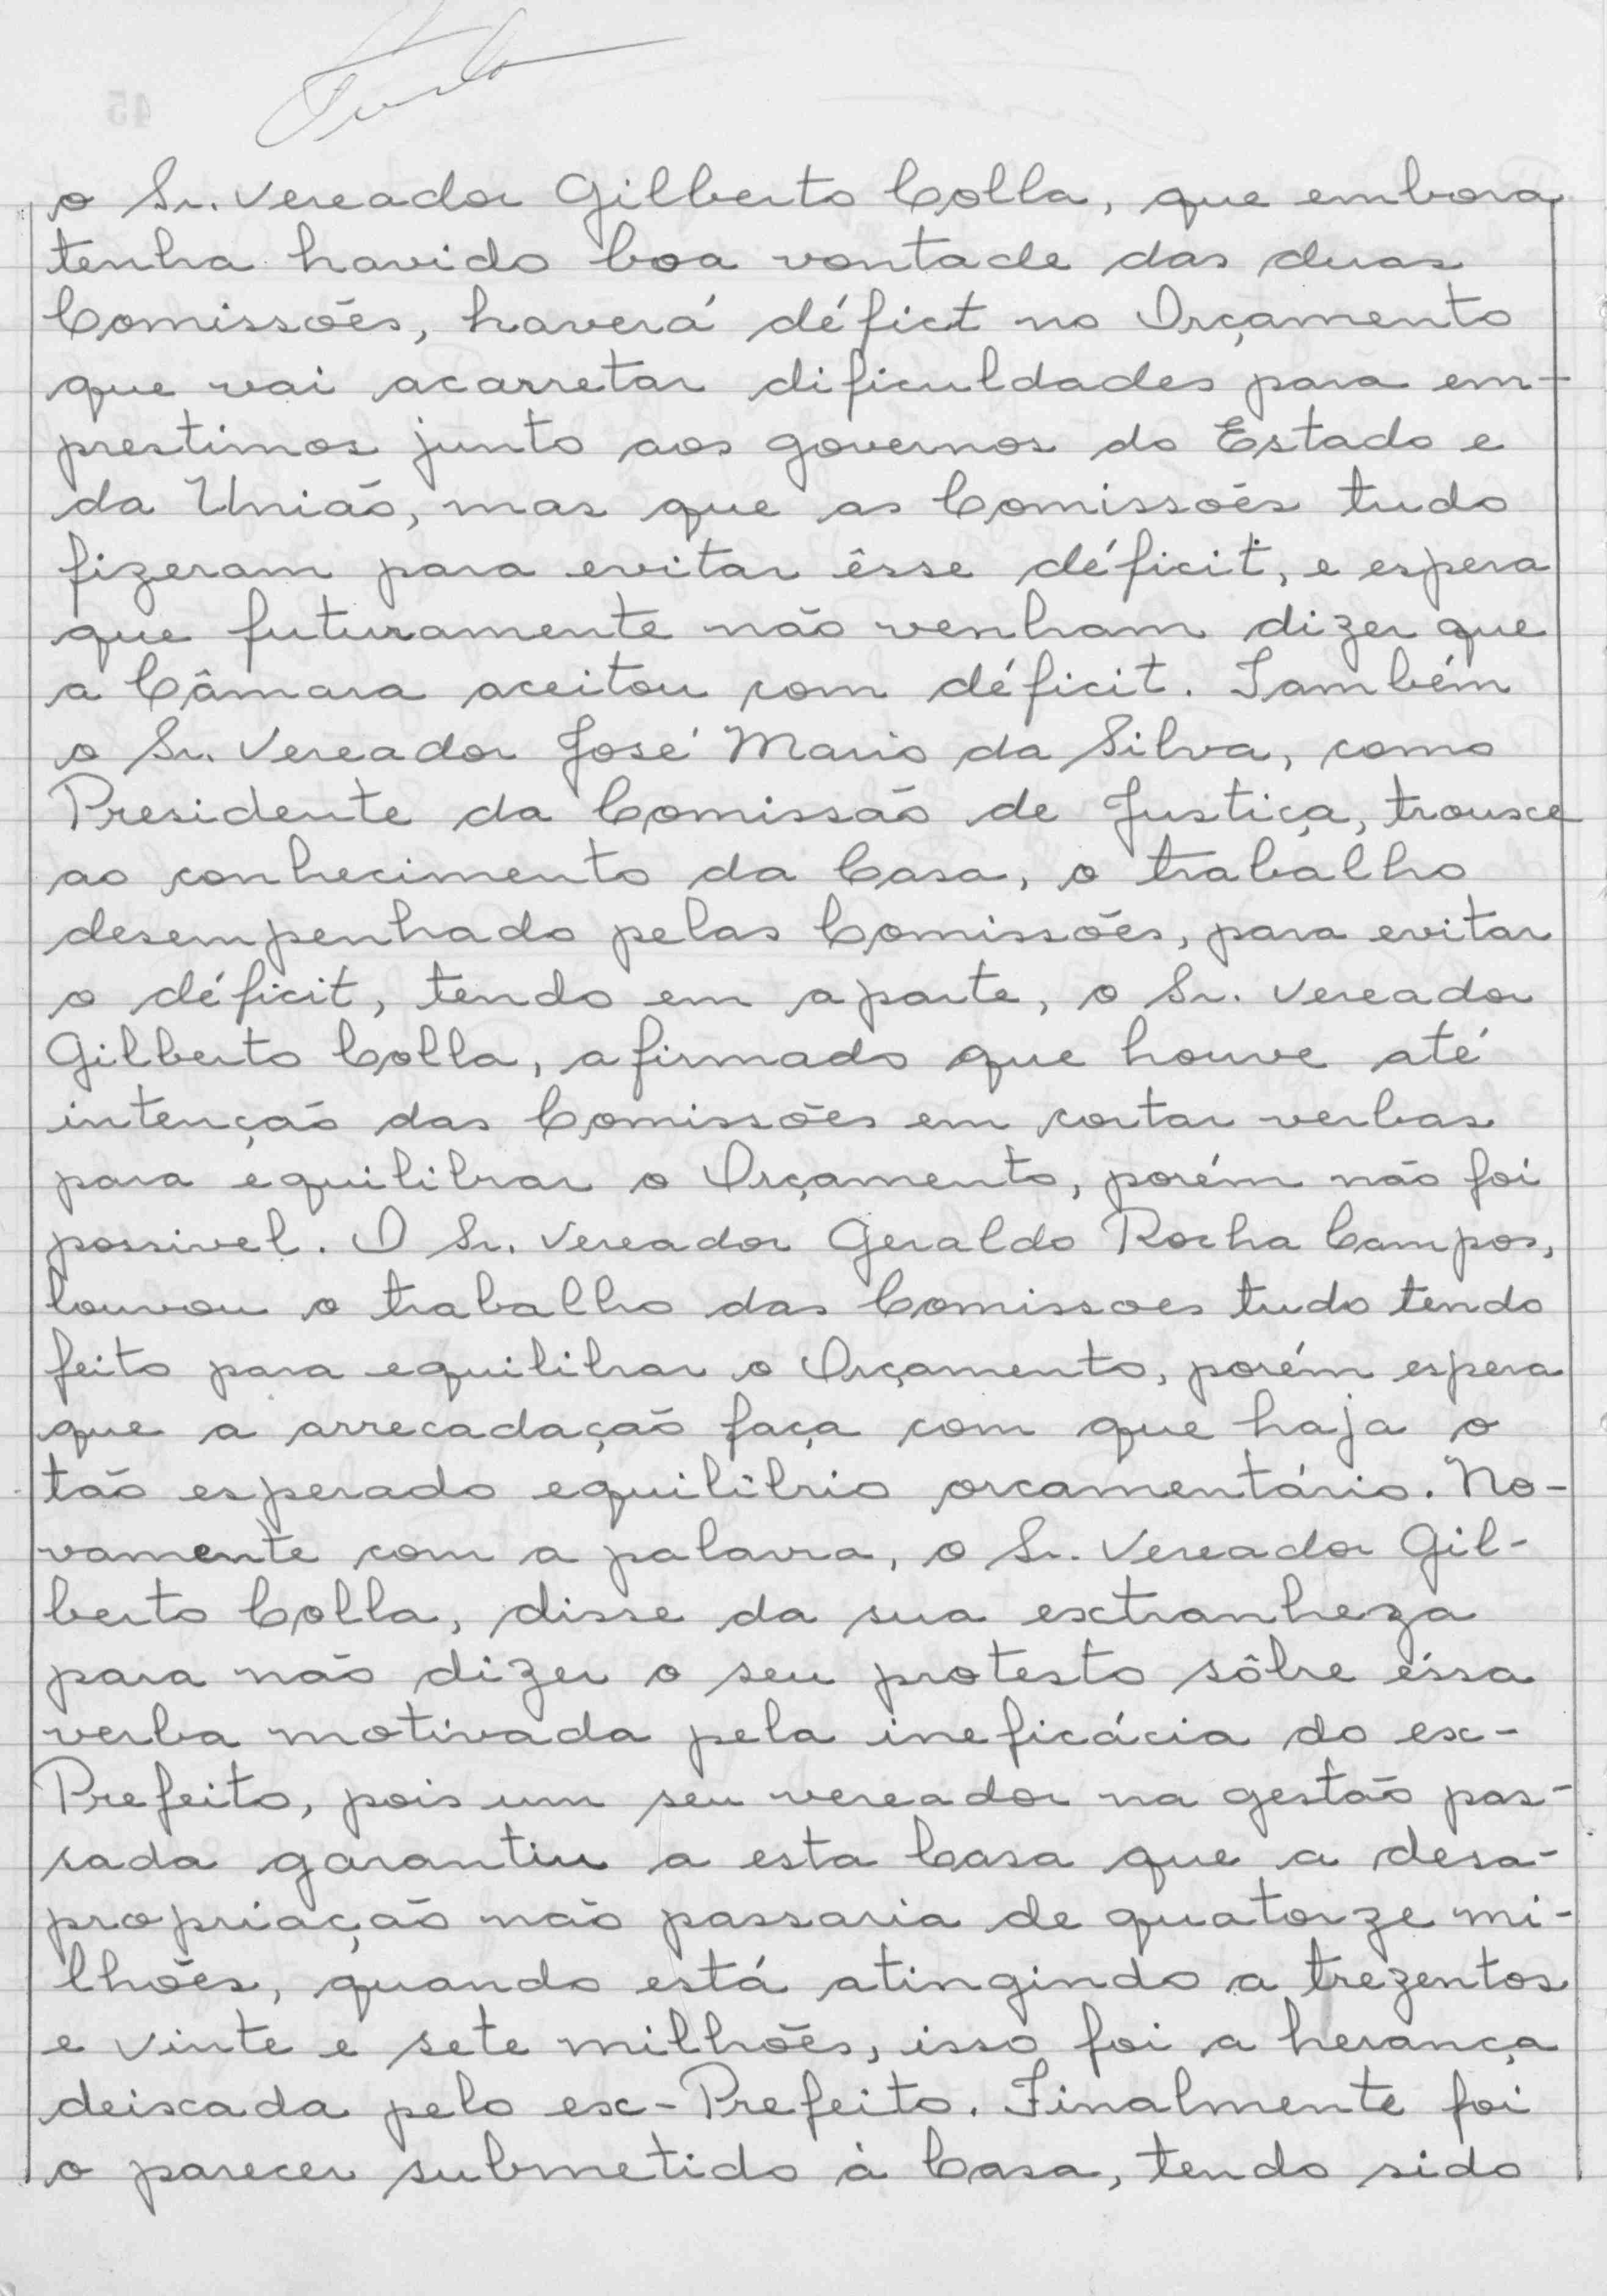 o Sr. Vereador Gilberto Colla, que embora
tenha havido boa vontade das duas
Comissões, haverá défict no Orçamento
que vai acarretar dificuldades para em-
prestimos junto aos governos do Estado e
da União, mas que as Comissões tudo
fizeram para evitar êsse déficit, e espera
que futuramente não venham dizer que
a Câmara aceitou com déficit. Também
o Sr. Vereador José Mario da Silva, como
Presidente da Comissão de Justiça, trouxe
ao conhecimento da Casa, o trabalho
desempenhado pelas Comissões, para evitar
o déficit, tendo em aparte, o Sr. Vereador
Gilberto Colla, afirmado que houve até
intenção das Comissões em cortar verbas
para equilibrar o Orçamento, porém não foi
possivel. O Sr. Vereador Geraldo Rocha Campos,
louvou o trabalho das Comissoes tudo tendo
feito para equilibrar o Orçamento, porém espera
que a arrecadação faça com que haja o
tão esperado equilibrio orcamentário. No-
vamente com a palavra, o Sr. Vereador Gil-
berto Colla, disse da sua extranheza
para não dizer o seu protesto sôbre éssa
verba motivada pela ineficácia do ex-
Prefeito, pois um seu vereador na gestão pas-
sada garantiu a esta Casa que a desa-
propriação não passaria de quatorze mi-
lhões, quando está atingindo a trezentos
e vinte e sete milhões, isso foi a herança
deixada pelo ex-Prefeito. Finalmente foi
o parecer submetido à Casa, tendo sido